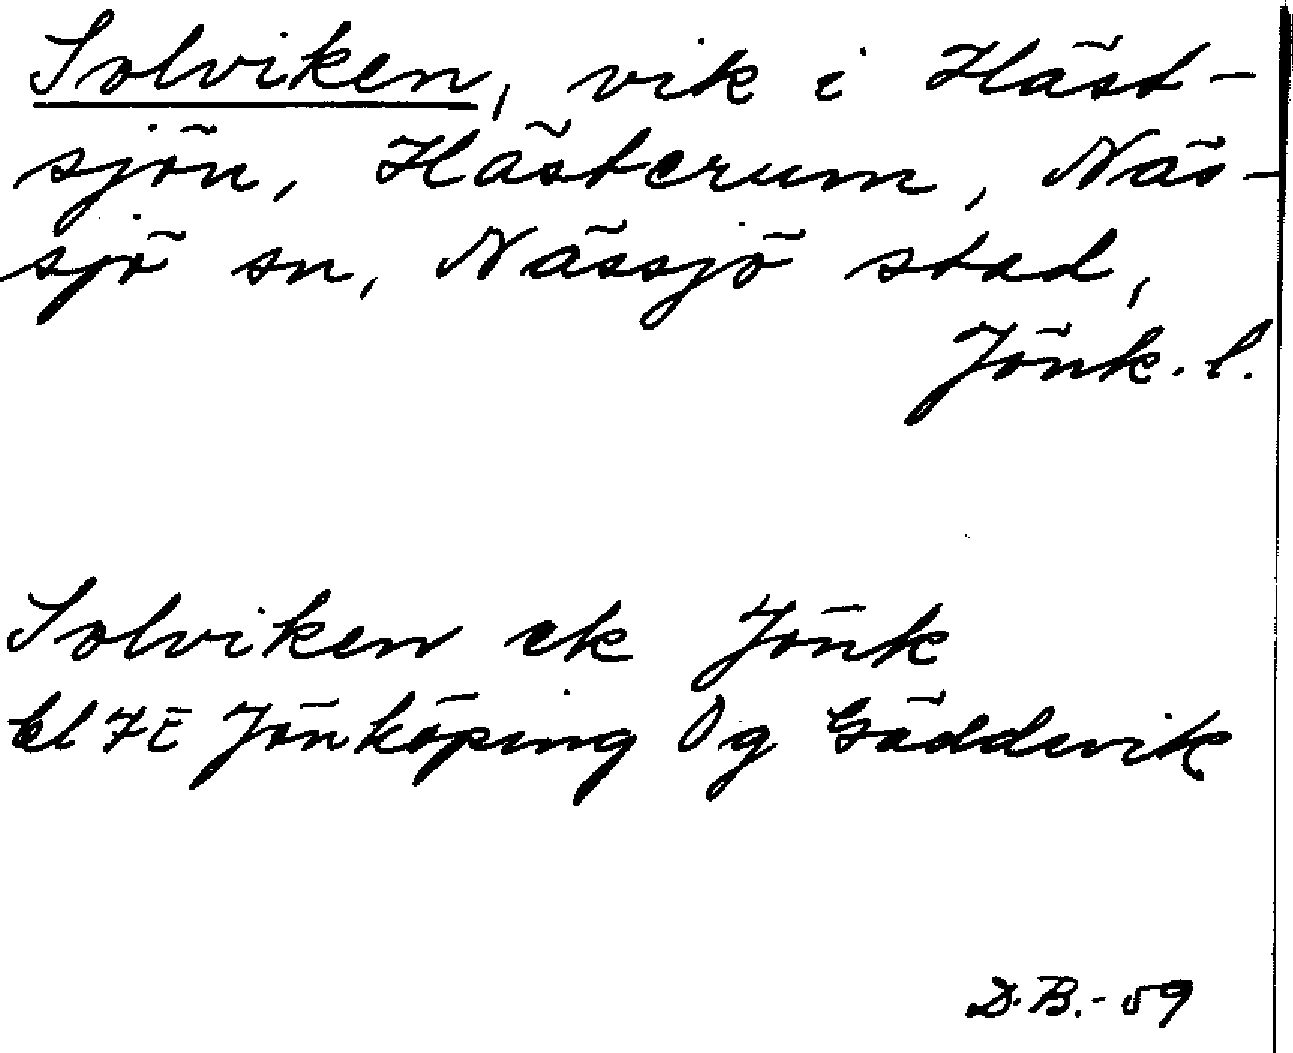 Solviken, vik i Häst-
sjön, Hästerum, Näs-
sjö sn, Nässjö stad,
Jönk. l.
Solviken ek Jönk
bl 7E Jönköping Og Gäddevik
D.B.-59